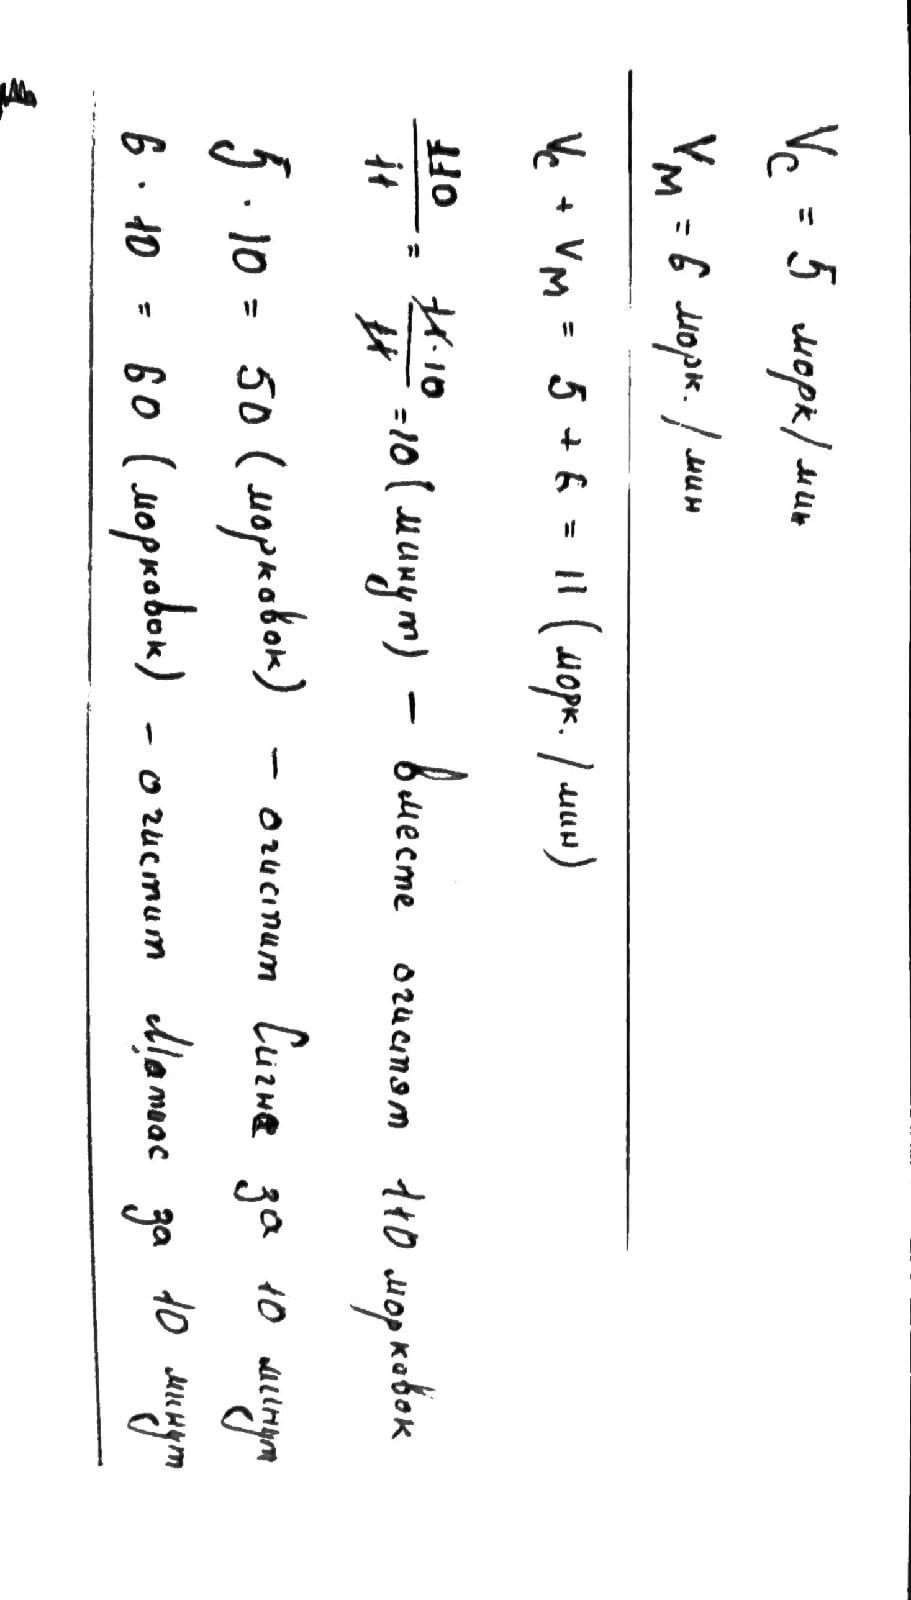 Vс = 5 морк/мин
Vм = 6 морк./мин
Vс + Vм = 5 + 6 = 11 (морк./мин)
110/11 = 11·10/11 = 10 (минут) – вместе очистят 110 морковок
5 · 10 = 50 (морковок) – очистит Сигне за 10 минут
6 · 10 = 60 (морковок) – очистит Матиас за 10 минут